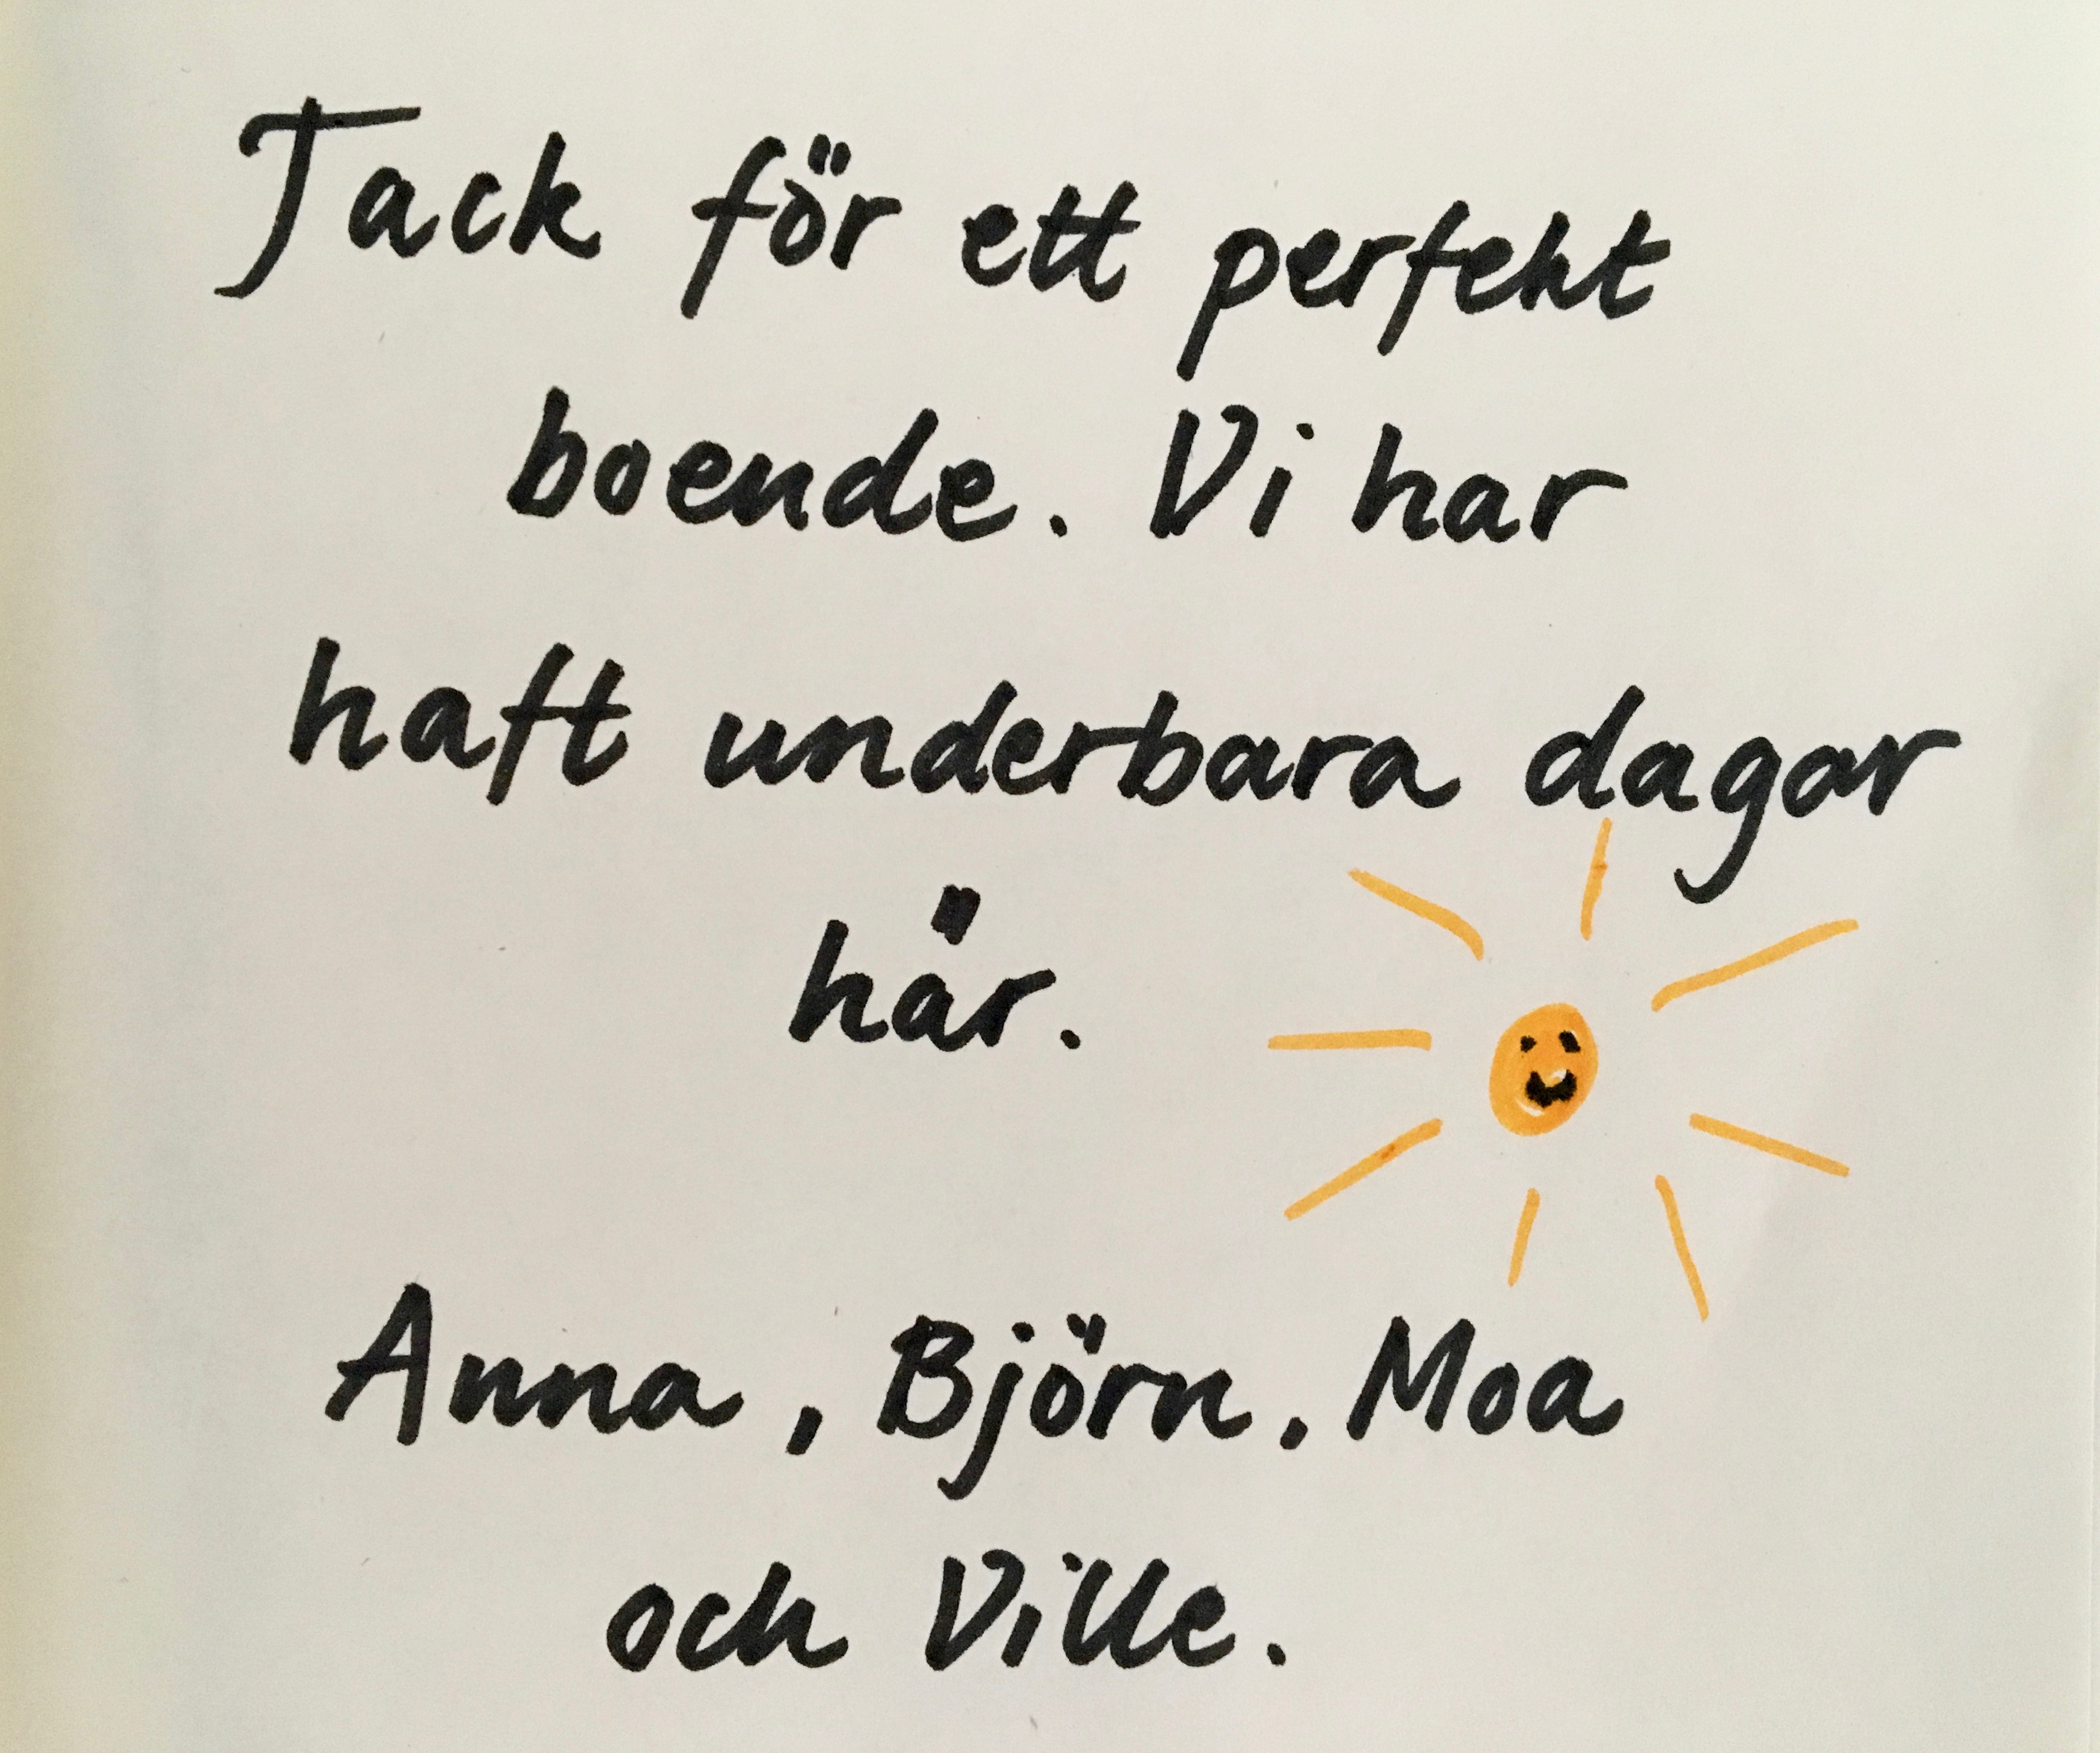 Tack för ett perfekt
boende. Vi har
haft underbara dagar
här.
Anna, Björn, Moa
och Ville.